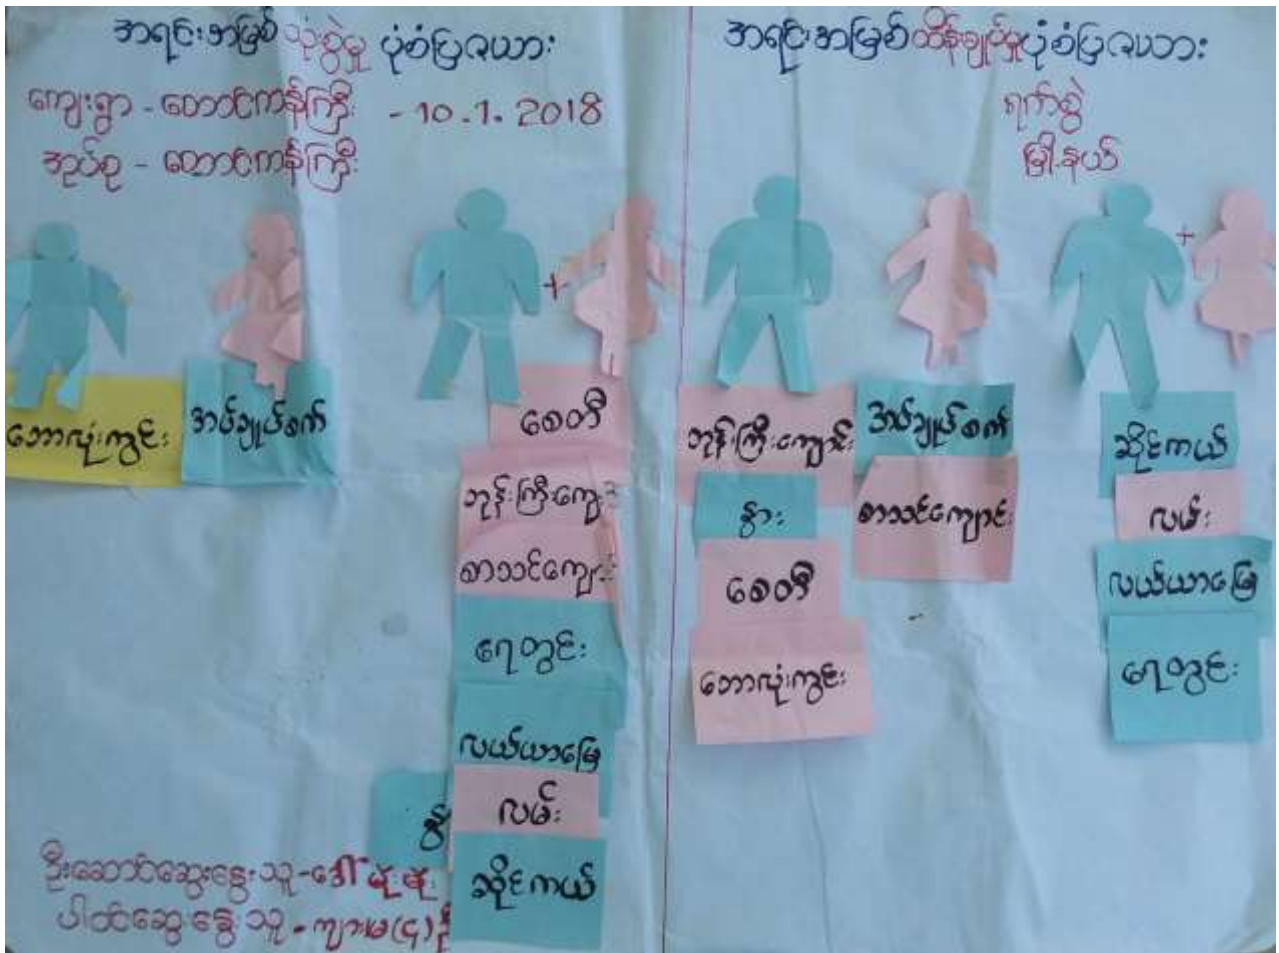 အရင်းအမြစ်သုံးစွဲမှု ပုံစံပြဇယား
ကျေးရွာ - တောင်ကန်ကြီး - 10.1.2018
အုပ်စု - တောင်ကန်ကြီး
+
ဘောလုံးကွင်း
အပ်ချုပ်စက်
စေတီ
ဘုန်းကြီးကျေ
စာသင်ကျေ
ရေတွင်း
လယ်ယာမြေ
လမ်း
ဆိုင်ကယ်
ဦးဆောင်ဆွေးနွေးသူ - ဒေါ်
ပါဝင်ဆွေးနွေးသူ - ကျား/မ (၄) ဦ
အရင်းအမြစ်ထိန်းချုပ်မှုပုံစံပြဇယား
ရက်စွဲ
မြို့နယ်
+
ဘုန်းကြီးကျောင်း
နွား
စေတီ
ဘောလုံးကွင်း
အပ်ချုပ်စက်
စာသင်ကျောင်း
ဆိုင်ကယ်
လမ်း
လယ်ယာမြေ
ရေတွင်း